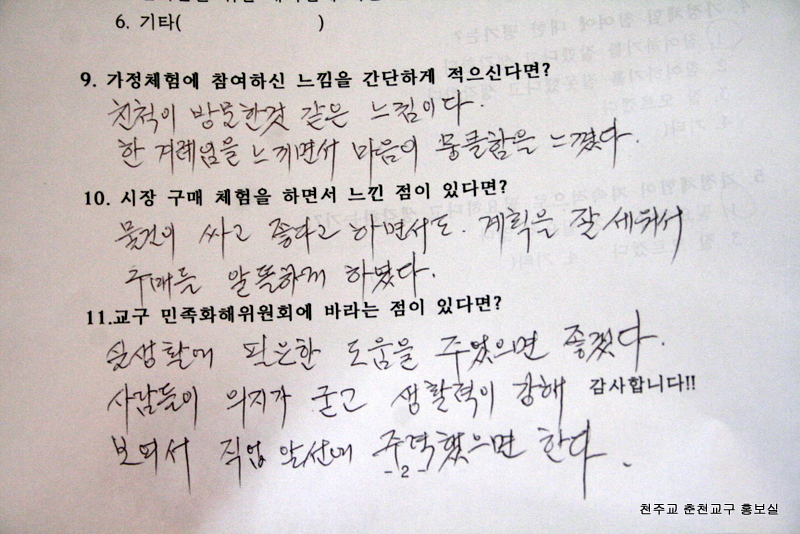 6. 기타(                    )
9. 가정체험에 참여하신 느낌을 간단하게 적으신다면?
친척이 방문한것 같은 느낌이다.
한 겨레임을 느끼면서 마음이 뭉클함을 느꼈다.
10. 시장 구매 체험을 하면서 느낀 점이 있다면?
물건이 싸고 좋다고 하면서도. 계획을 잘 세워서
구매를 알뜰하게 하였다.
11.교구 민족화해위원회에 바라는 점이 있다면?
실생활에 필요한 도움을 주었으면 좋겠다.
사람들이 의지가 굳고 생활력이 강해 감사합니다!!
보여서 직업 알선에 주력했으면 한다.
- 2 -
천주교 춘천교구 홍보실